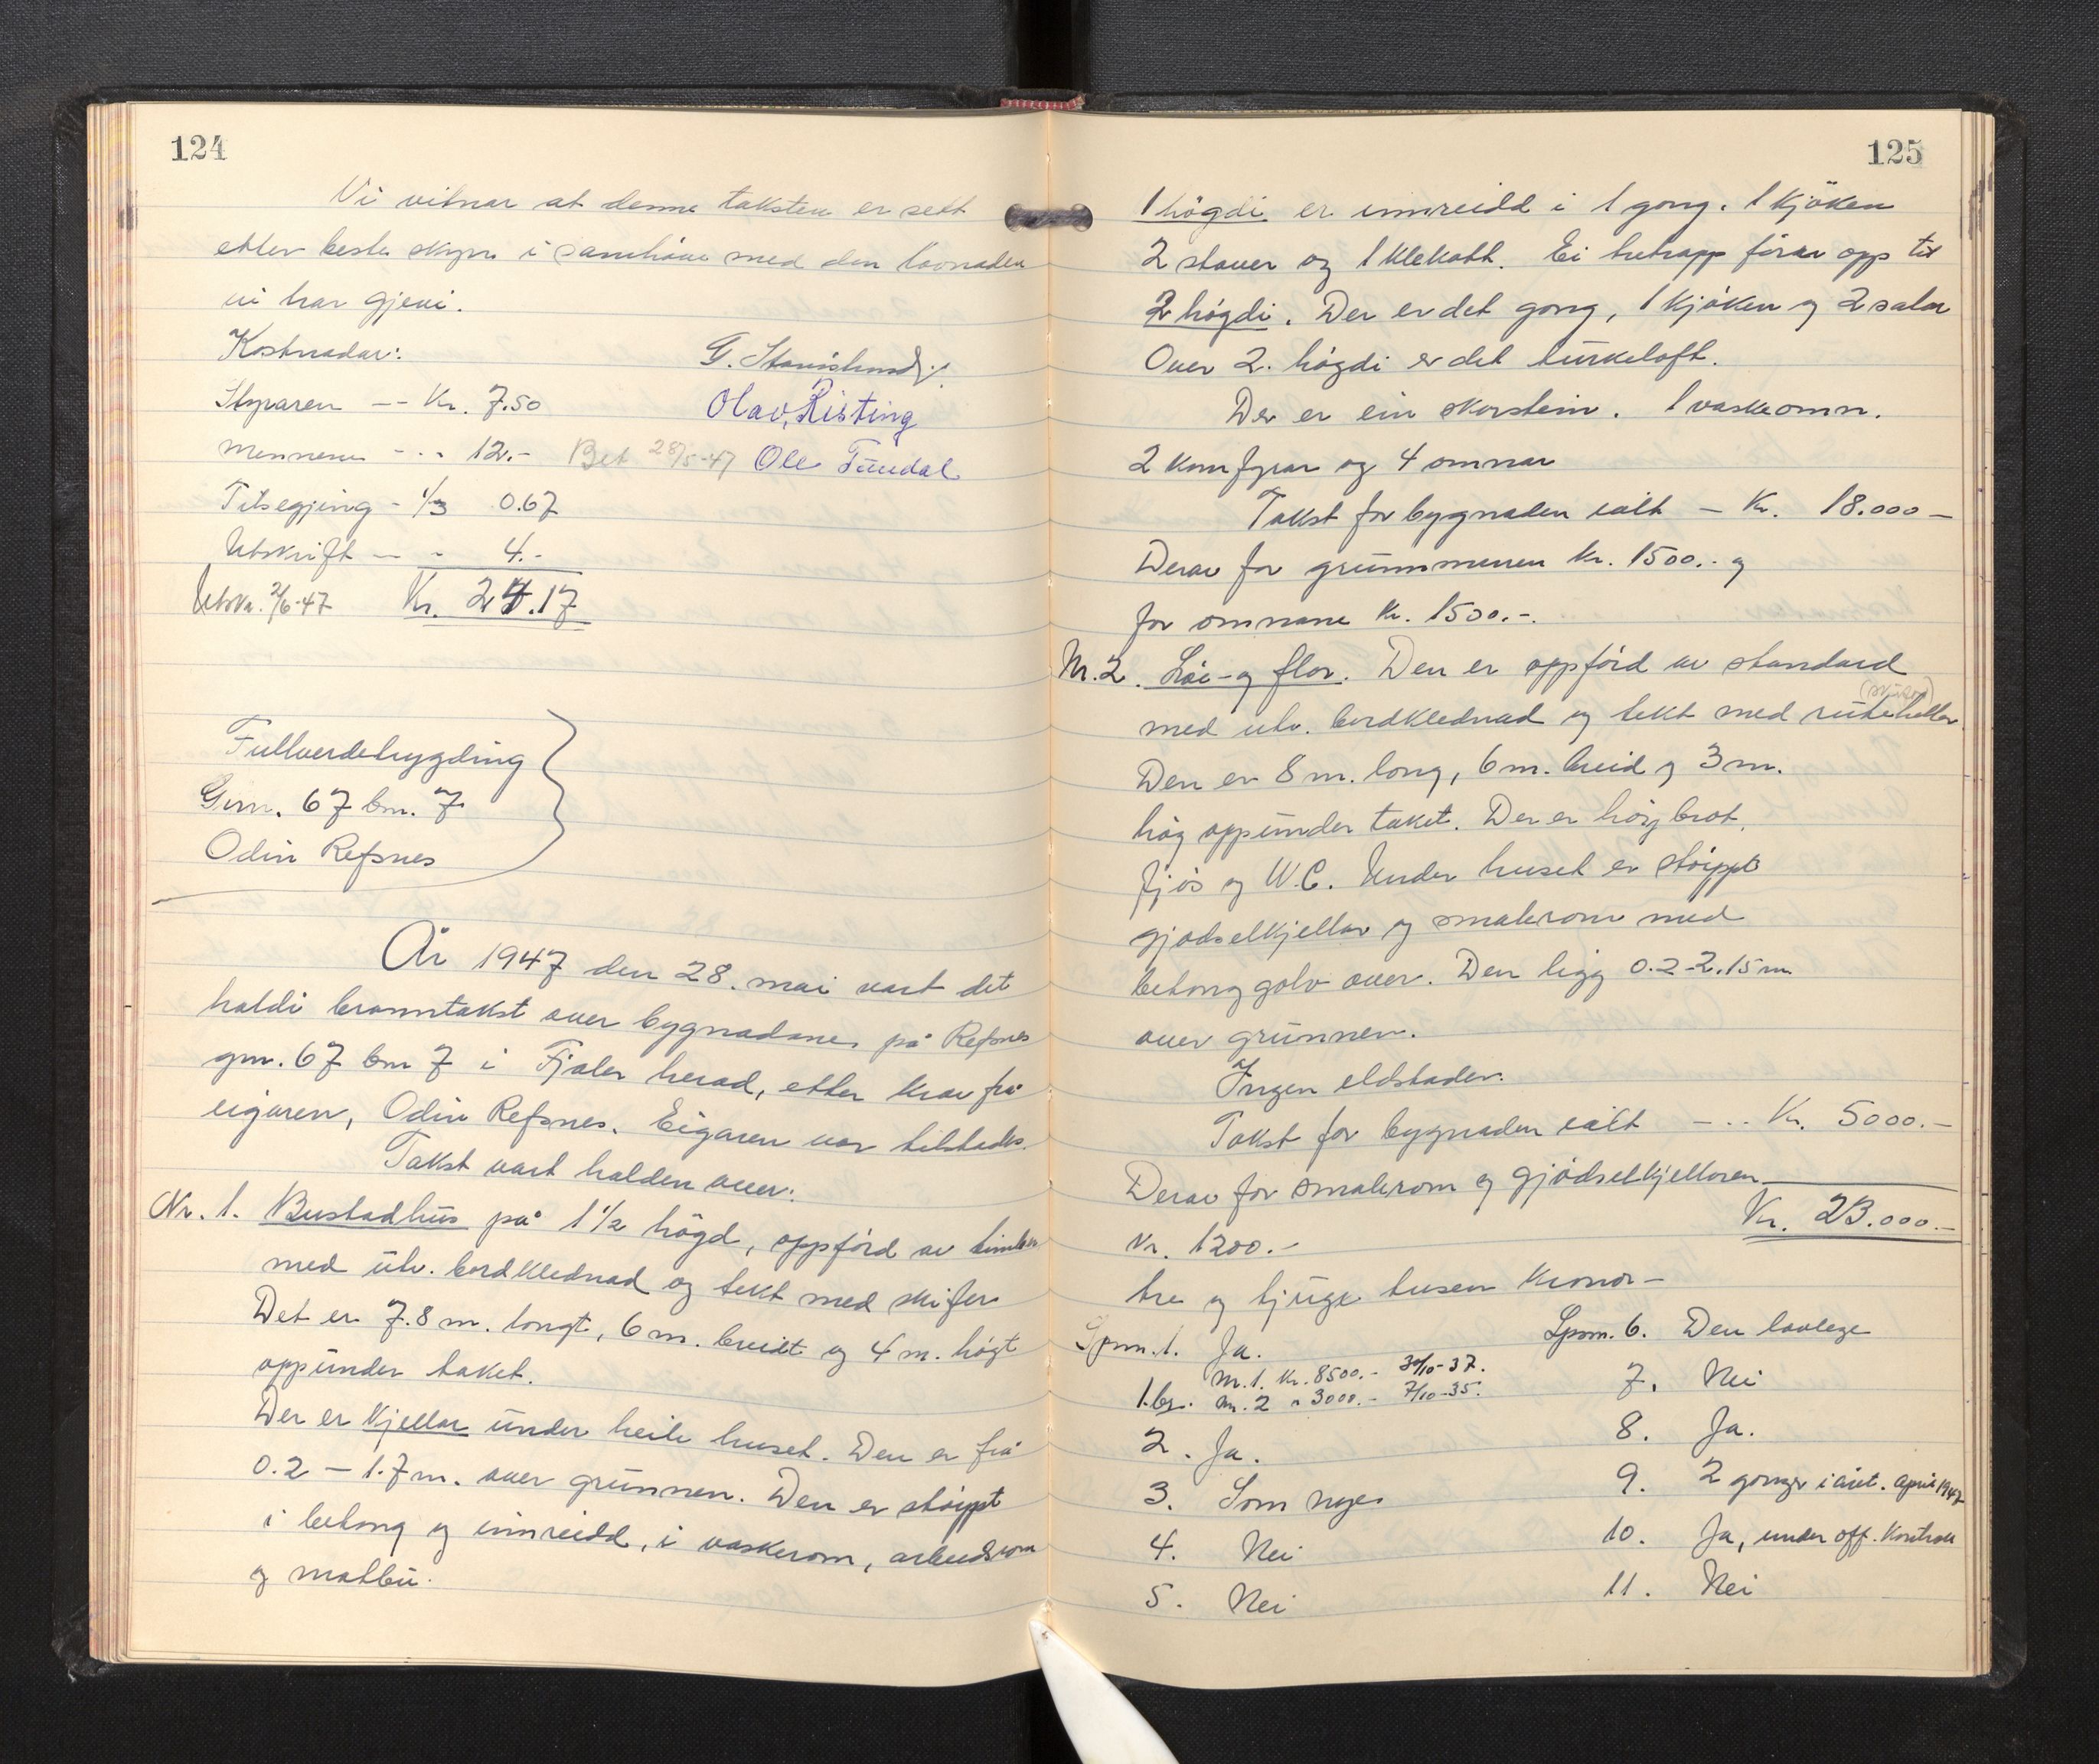 124
Vi vitnar at denne taksten er sett
etter beste skyn i samhöve med den lovnaden
vi har gjevi.
Kostnadar:
Styraren -- Kr. 7.50
Mennene - - " 12.- Bet 28/5-47
Tilsegjing - 1/3 0.67
Utskrift — " 4.-
Utskr. 2/6-47 Kr. 24.17
Olav Risting
Ole Tundal
Fullverdetrygding
Grn. 67 bn. 7
Odin Refsnes
År 1947 den 28. mai vart det
haldi branntakst over bygnadane på Refsnes
gnr. 67 bnr 7 i Fjaler herad, etter krav frå
eigaren, Odin Refsnes. Eigaren var tilstades.
Takst vart halden over:
Nr. 1. Bustadhus på 1 1/2 högd, oppförd av timber
med utv. bordklednad og tekt med skifer
Det er 7.8 m. langt, 6 m. breidt og 4 m. högt
oppunder taket.
Der er kjellar under heile huset. Den er frå
0.2 — 1.7 m. over grunnen. Den er stöypt
i betong og innreidd, i vaskerom, arbeidsrom
og matbu.
125
1 högdi er innreidd i 1 gong. 1 kjöken
2 stover og 1 klekott. Ei tretrapp förer opp til
2 högdi. Der er det gong, 1 kjöken og 2 salar
Over 2. högdi er det turkeloft.
Der er ein skorstein. 1 vaskeomn.
2 komfyrar og 4 omnar
Takst for bygnaden ialt — Kr. 18.000 —
Derav for grunnmuren kr. 1500.- og
for omnane kr. 1500.-.
Nr. 2. Löe- og flor. Den er oppförd av standard
med utv. bordklednad og tekt med rutehellar
Den er 8 m. long, 6 m. breid og 3 m.
hög oppunder taket. Der er höybrot,
fjös og W.C. Under huset er stöypt
gjödselkjellar og smalerom med
betonggolv over. Den ligg 0.2-2.15 m
over grunnen.
Ingen eldstader.
Takst for bygnaden ialt - .. Kr. 5000.-
Derav for smalerom og gjödselkjellaren
Kr. 23.000.-
kr. 1200.-
tre og tjuge tusen kronor —
Spm. 1. Ja.
1.br. nr. 1. kr. 8500.- 30/10-37.
nr. 2 " 3000.- 7/10-35.
2. Ja.
3. Som nyes
4. Nei
5. Nei
Spm. 6. Den lovlege
7. Nei
8. Ja.
9. 2 gonger i året. april 1947
10. Ja, under off. kontroll
11. Nei